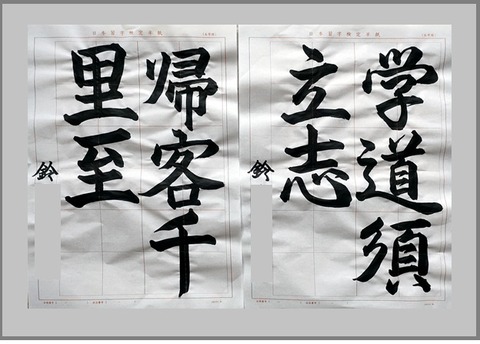 学道須
立志
鈴
帰客千
里至
鈴